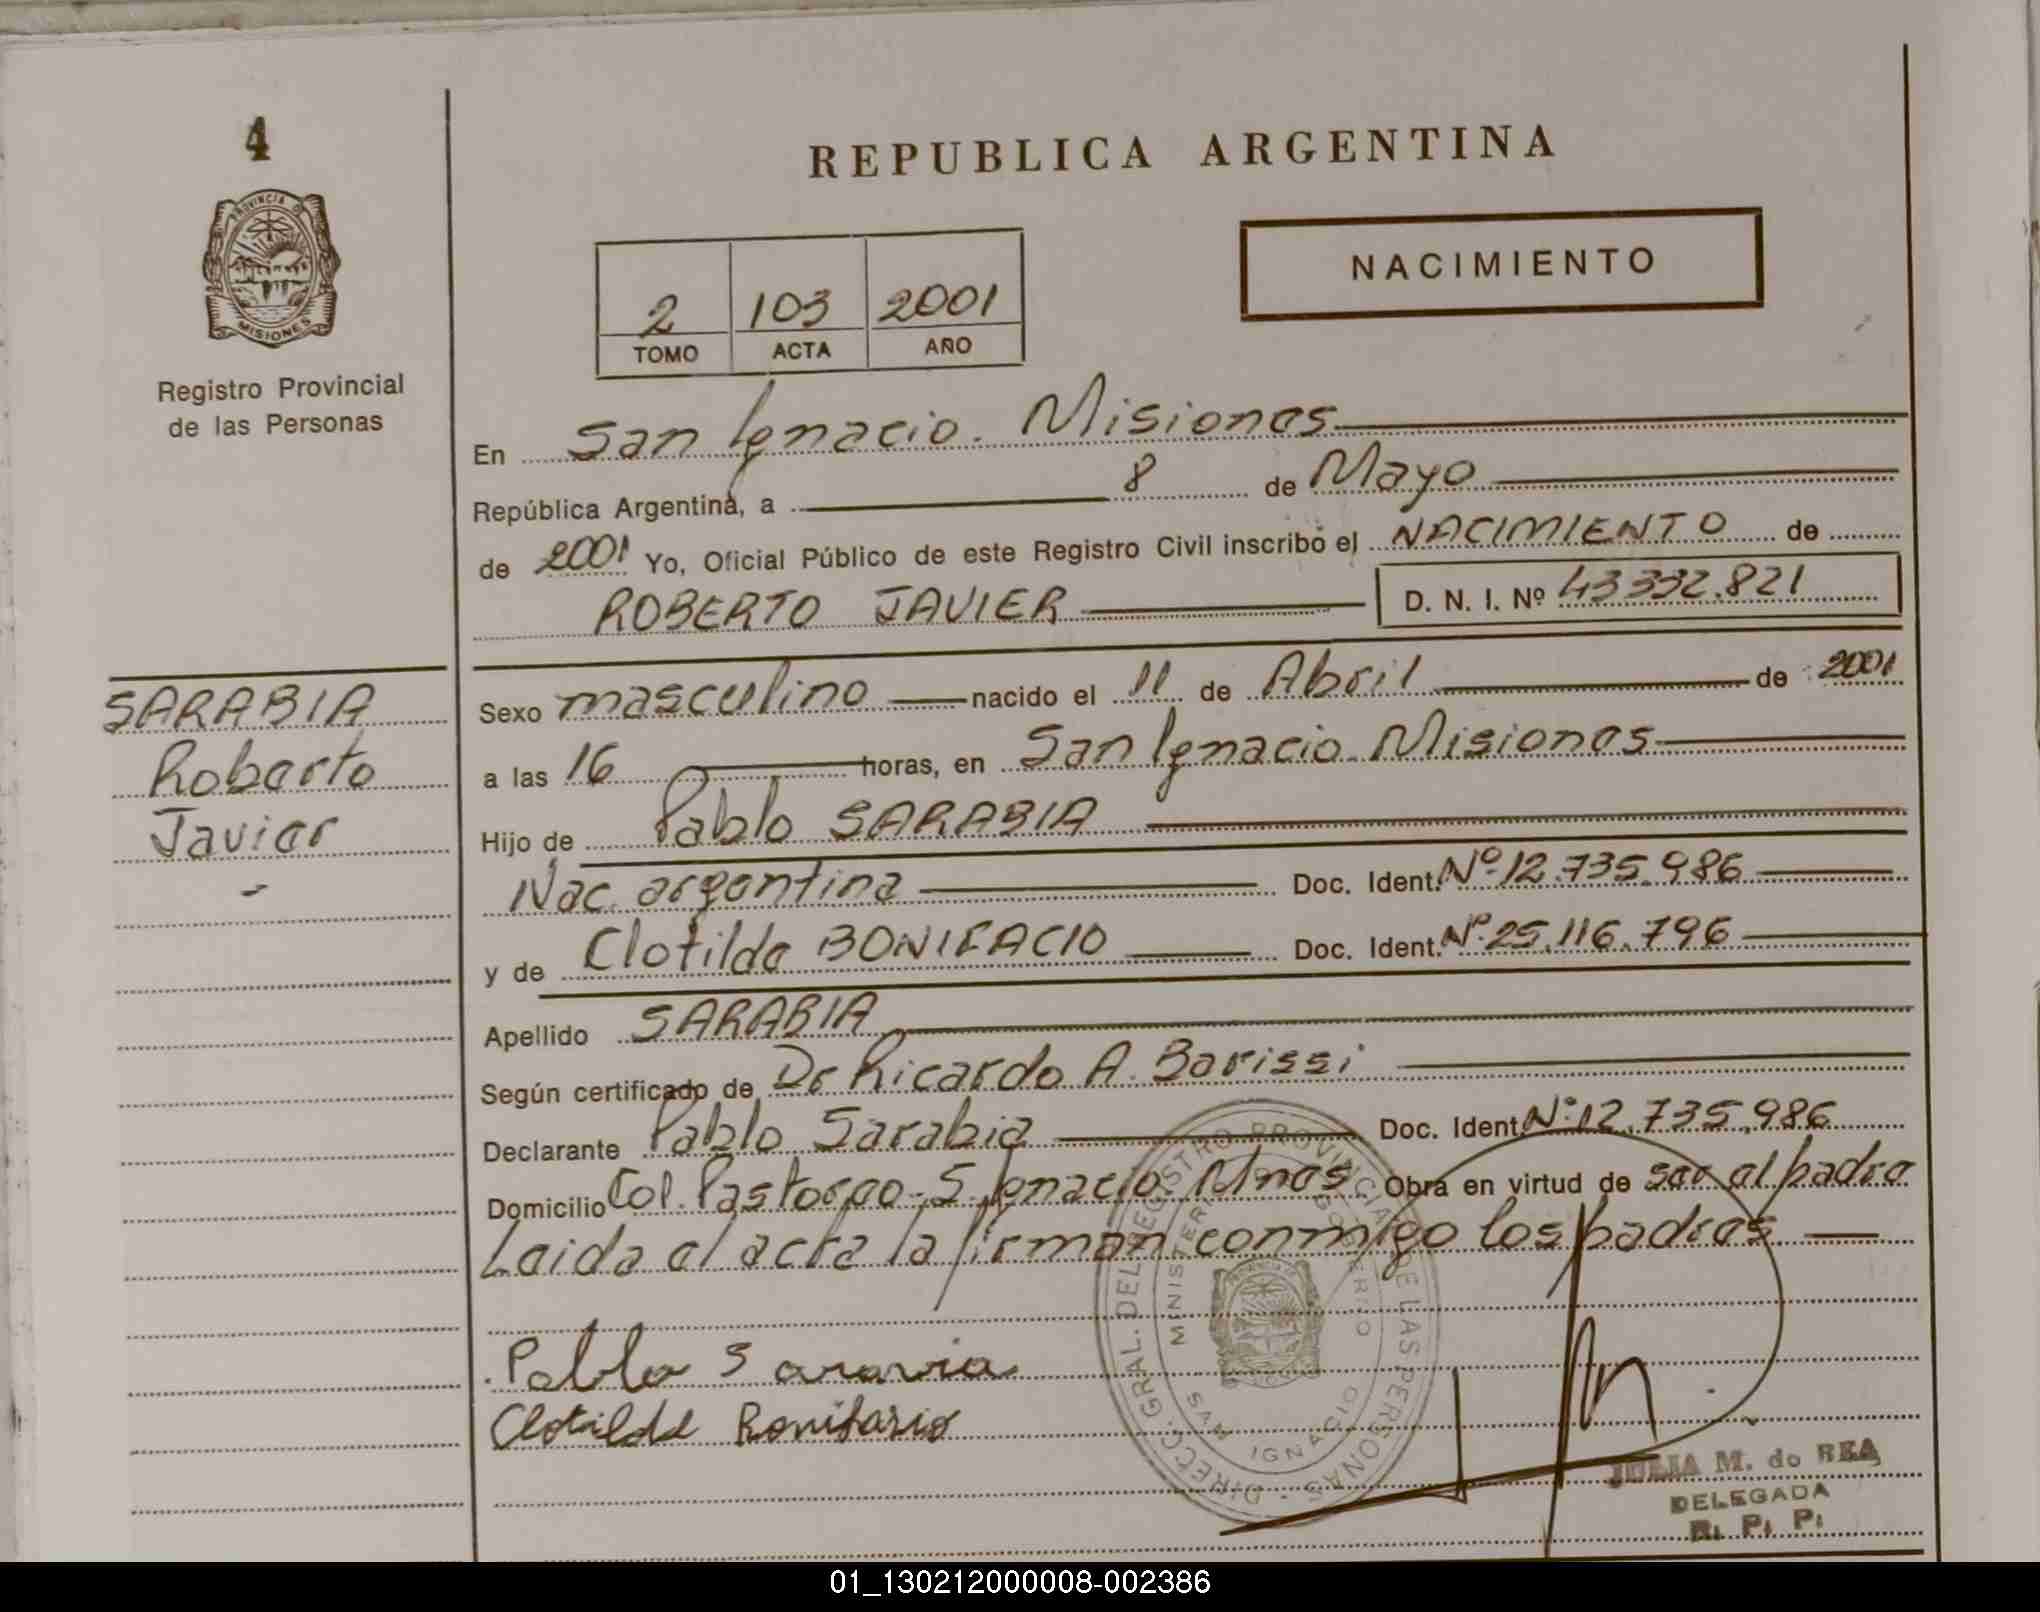 4
REPUBLICA ARGENTINA
PROVINCIA DE
MISIONES
Registro Provincial
de las Personas
2 103 2001
TOMO ACTA AÑO
NACIMIENTO
En San Ignacio. Misiones
República Argentina, a 8 de Mayo
de 2001 Yo, Oficial Público de este Registro Civil inscribo el NACIMIENTO de
ROBERTO JAVIER D. N. I. Nº 43332.821
SARABIA
Roberto
Javier
Sexo masculino nacido el 11 de Abril de 2001
a las 16 horas, en San Ignacio. Misiones
Hijo de Pablo SARABIA
Nac. argentina Doc. Ident. Nº 12.735.986
y de Clotilde BONIFACIO Doc. Ident. Nº 25.116.796
Apellido SARABIA
Según certificado de Dr Ricardo A. Barissi
Declarante Pablo Sarabia Doc. Ident. Nº 12.735.986
Domicilio Col. Pastoreo. S. Ignacio. Mnes Obra en virtud de ser el padre
Leida el acta la firman conmigo los padres
Pablo Saravia
Clotilde Bonifasio
DIRECC. GRAL. DEL REGISTRO PROVINCIAL DE LAS PERSONAS
MINISTERIO DE GOBIERNO
SAN IGNACIO
JULIA M. de REA
DELEGADA
R. P. P.
01_130212000008-002386